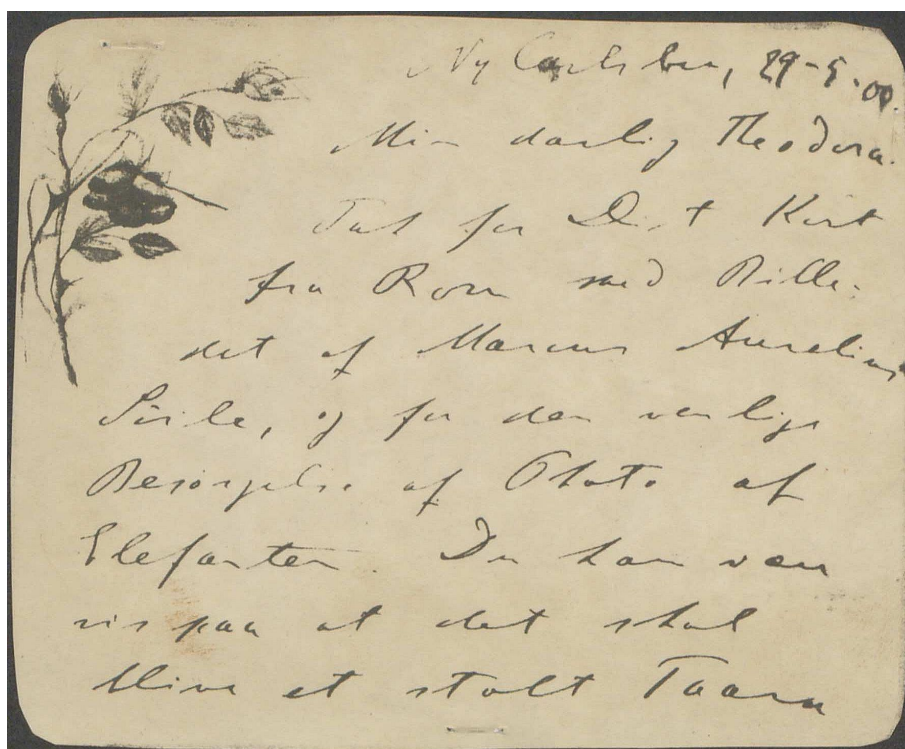 Ny Carlsberg, 29-5-00.
Min darling Theodora.
Tak for Dit Kort
fra Rom med Bille-
det af Marcus Aurelius
Söile, og for den venlige
Besörgelse af Photo af
Elefanten. Du kan være
vis paa at det skal
blive et stolt Taarn